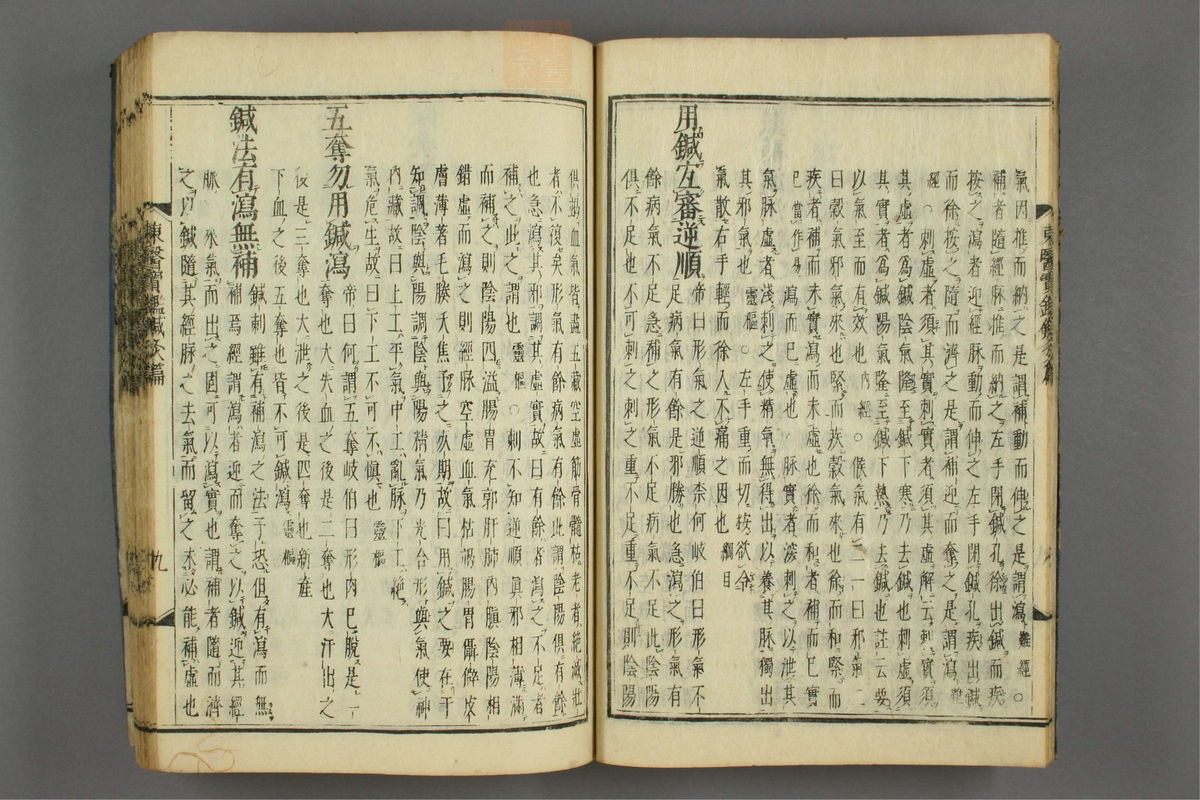 氣因推而納之是謂補動而伸之是謂瀉難經○
補者隨經脉推而納之左手閉鍼孔徐出鍼而疾
按之瀉者迎經脉動而伸之左手閉鍼孔疾出鍼
而徐按之隨而濟之是謂補迎而奪之是謂瀉難
經○刺虛者須其實刺實者須其虛解云刺實須
其虛者爲鍼陰氣隆至鍼下寒乃去鍼也刺虛須
其實者爲鍼陽氣隆至鍼下熱乃去鍼也註云要
以氣至而有效也內經○候氣有二一曰邪氣二
曰穀氣邪氣來也緊而疾穀氣來也徐而和緊而
疾者補而未實瀉而未虛也徐而和者補而已實
巳當作易瀉而已虛也○脉實者深刺之以泄其
氣脉虛者淺刺之使精氣無得出以養其脉獨出
其邪氣也靈樞○左手重而切按欲令
氣散右手輕而徐入不痛之因也綱目
用鍼宜審逆順帝曰形氣之逆順柰何岐伯曰形氣不
足病氣有餘是邪勝也急瀉之形氣有
餘病氣不足急補之形氣不足病氣不足此陰陽
俱不足也不可刺之刺之重不足重不足則陰陽
俱竭血氣皆盡五藏空虛筋骨髓枯老者絶滅壯
者不復矣形氣有餘病氣有餘此謂陰陽俱有餘
也急瀉其邪調其虛實故曰有餘者瀉之不足者
補之此之謂也靈樞○刺不知逆順眞邪相薄滿
而補之則陰陽四溢腸胃充郭肝肺內䐜陰陽相
錯虛而瀉之則經脉空虛血氣枯腸胃僻皮
膚薄著毛腠夭焦予之死期故曰用鍼之要在于
知調陰與陽調陰與陽精氣乃光合形與氣使神
內藏故曰上工平氣中工亂脉下工絶
氣危生故曰下工不可不愼也靈樞
五奪勿用鍼瀉帝曰何謂五奪岐伯曰形肉巳脫是一
奪也大失血之後是二奪也大汗出之
後是三奪也大泄之後是四奪也新産
下血之後五奪也皆不可鍼瀉靈樞
鍼法有瀉無補鍼刺雖有補瀉之法予恐但有瀉而無
補焉經謂瀉者迎而奪之以鍼迎其經
脉之來氣而出之固可以瀉實也謂補者隨而濟
之以鍼隨其經脉之去氣而留之未必能補虛也
東醫寶鑑鍼灸篇
九
東醫寶鑑鍼灸篇